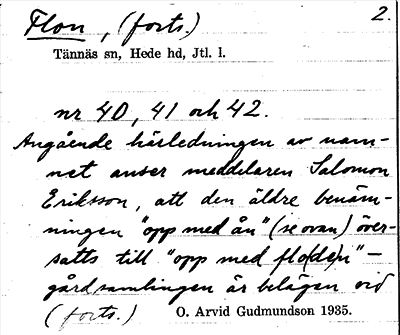 Flon, (forts.) 2.
Tännäs sn, Hede hd, Jtl. l.
nr 40, 41 och 42.
Angående härledningen av nam-
net anser meddelaren Salomon
Eriksson, att den äldre benäm-
ningen "opp med ån" (se ovan) över-
satts till "opp med flo(de)n" —
gårdsamlingen är belägen vid
(forts.) O. Arvid Gudmundson 1935.